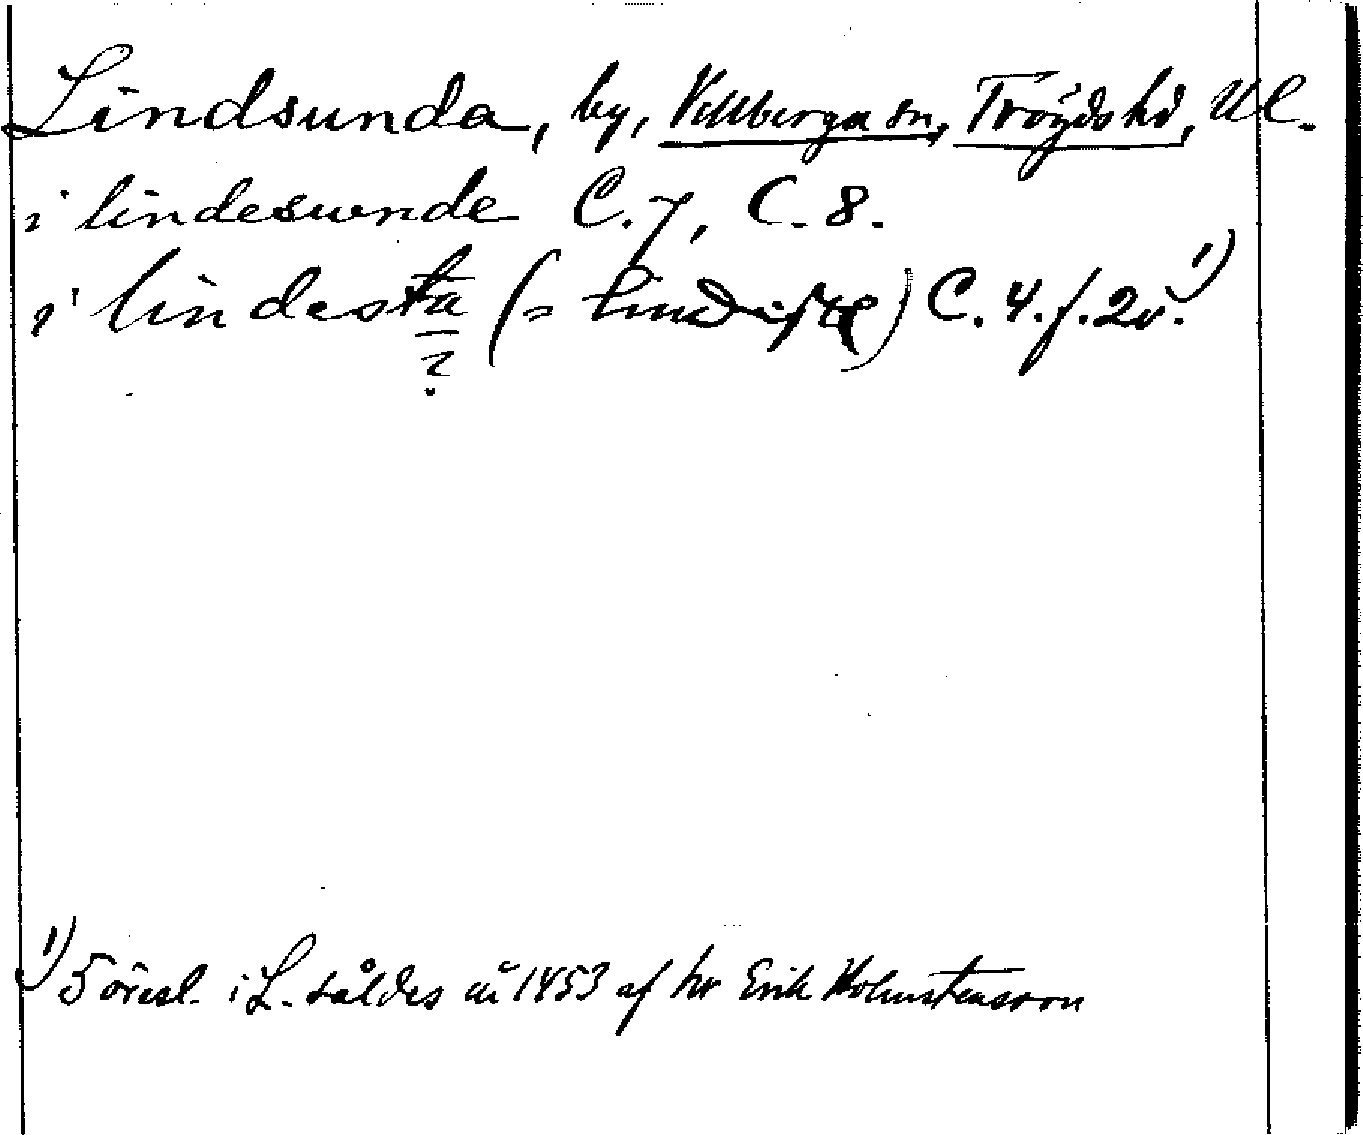 Lindsunda, by, Villberga sn, Tröjds hd, Ul.
i lindesunde C. 7, C. 8.
i lindesta (= ) C. 4. f. 2v. 1)
?
1) 5 öresl. i L. såldes år 1453 af hr Erik Holmstensson